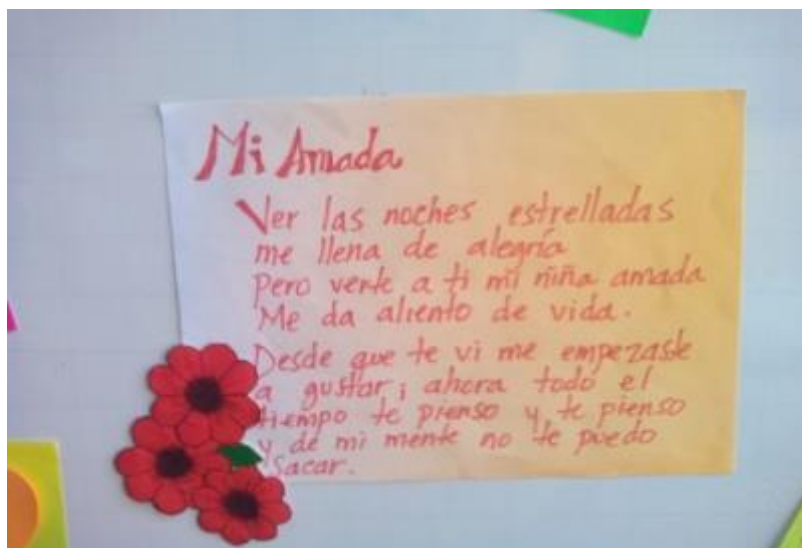 Mi Amada
Ver las noches estrelladas
me llena de alegría
Pero verte a ti mi niña amada
Me da aliento de vida.
Desde que te vi me empezaste
a gustar; ahora todo el
tiempo te pienso y te pienso
y de mi mente no te puedo
Sacar.